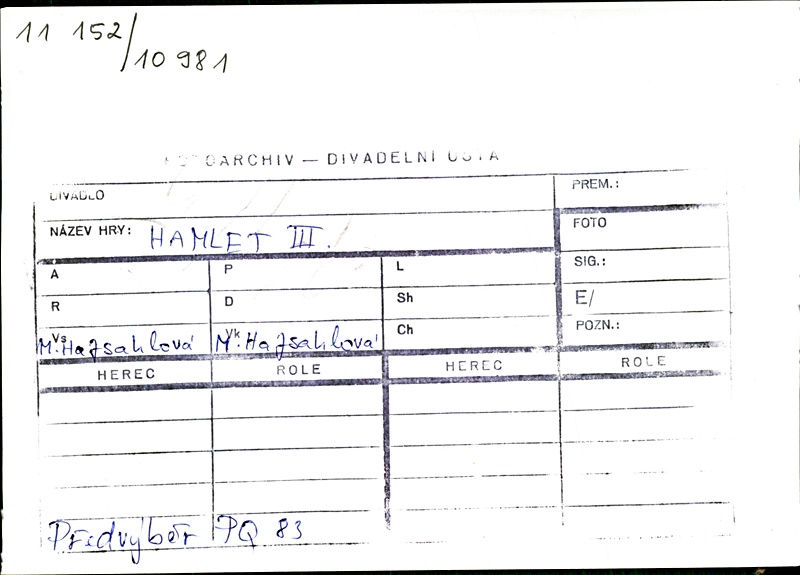 11 152/10 981
FOTOARCHIV — DIVADELNÍ ÚSTA
DIVADLO
PREM.:
NÁZEV HRY: HAMLET III.
FOTO
A P L
SIG.:
R D Sh
E/
Vs M. Hajsahlová Vk M. Hajsahlová Ch
POZN.:
HEREC ROLE HEREC ROLE
Předvýběr PQ 83